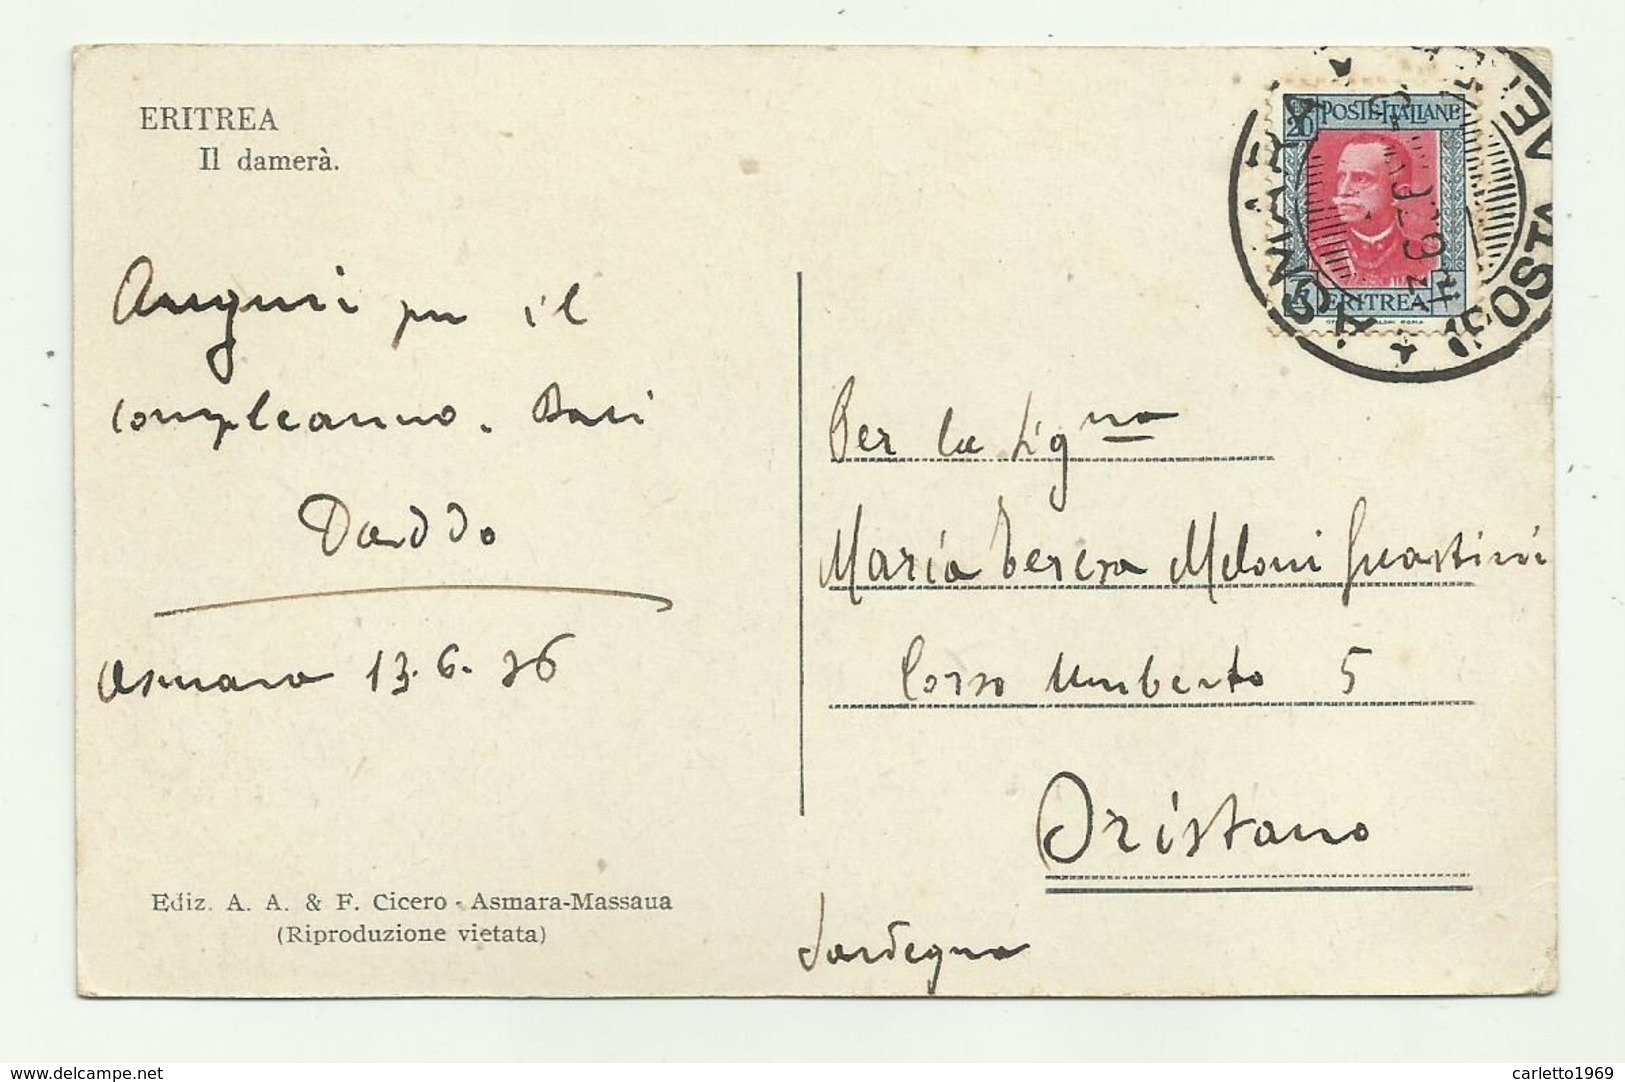 ERITREA
Il damerà.
Auguri per il
compleanno. Baci
Daddo
Asmara 13.6.36
Ediz. A. A. & F. Cicero - Asmara-Massaua
(Riproduzione vietata)
20 POSTE ITALIANE
ERITREA
ASMARA
POSTA AE
Per la Signa
Maria Teresa Meloni Guastini
Corso Umberto 5
Oristano
Sardegna
www.delcampe.net
carletto1969